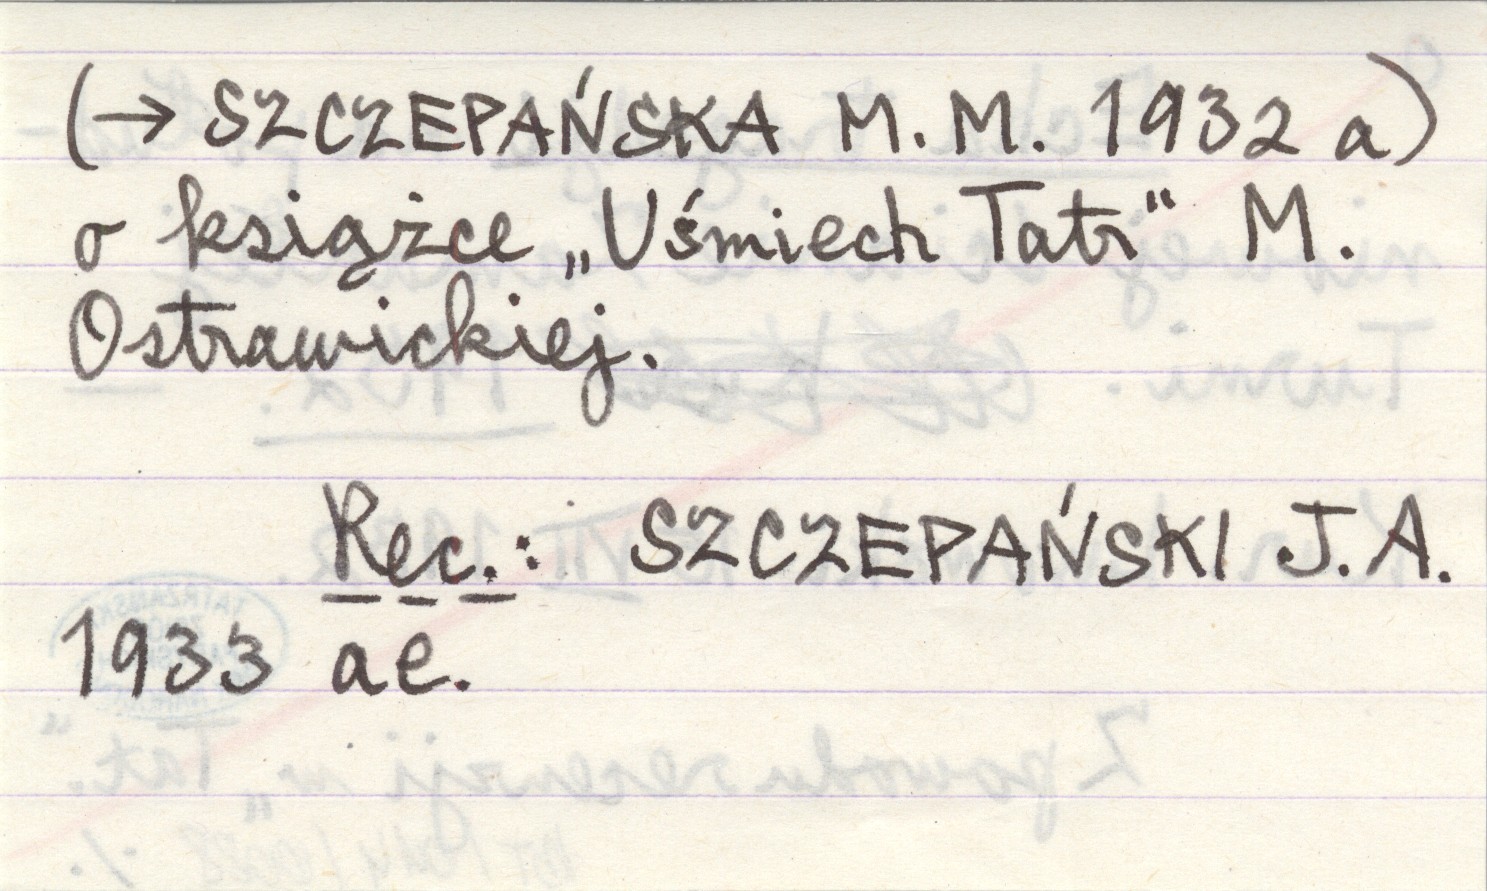 (→ SZCZEPAŃSKA M.M. 1932 a)
o książce „Uśmiech Tatr" M.
Ostrawickiej.
Rec.: SZCZEPAŃSKI J.A.
1933 ae.